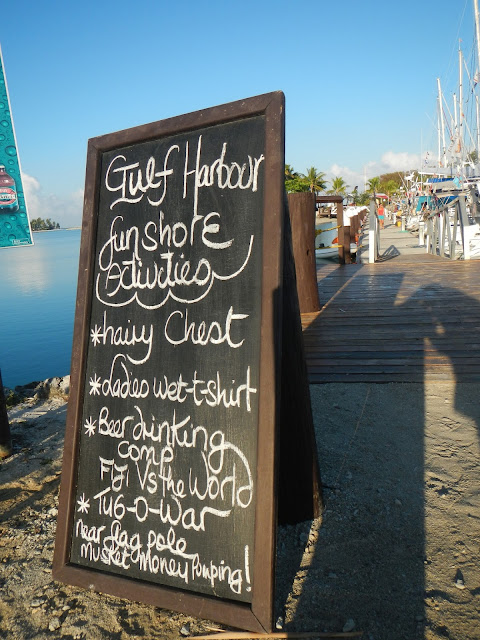 Gulf Harbour
fun shore
Activities
*hairy Chest
*Ladies wet-t-shirt
*Beer drinking
comp
FIJI Vs the World
*TUG-O-WAR
Near flag pole
Musket Money Pumping!